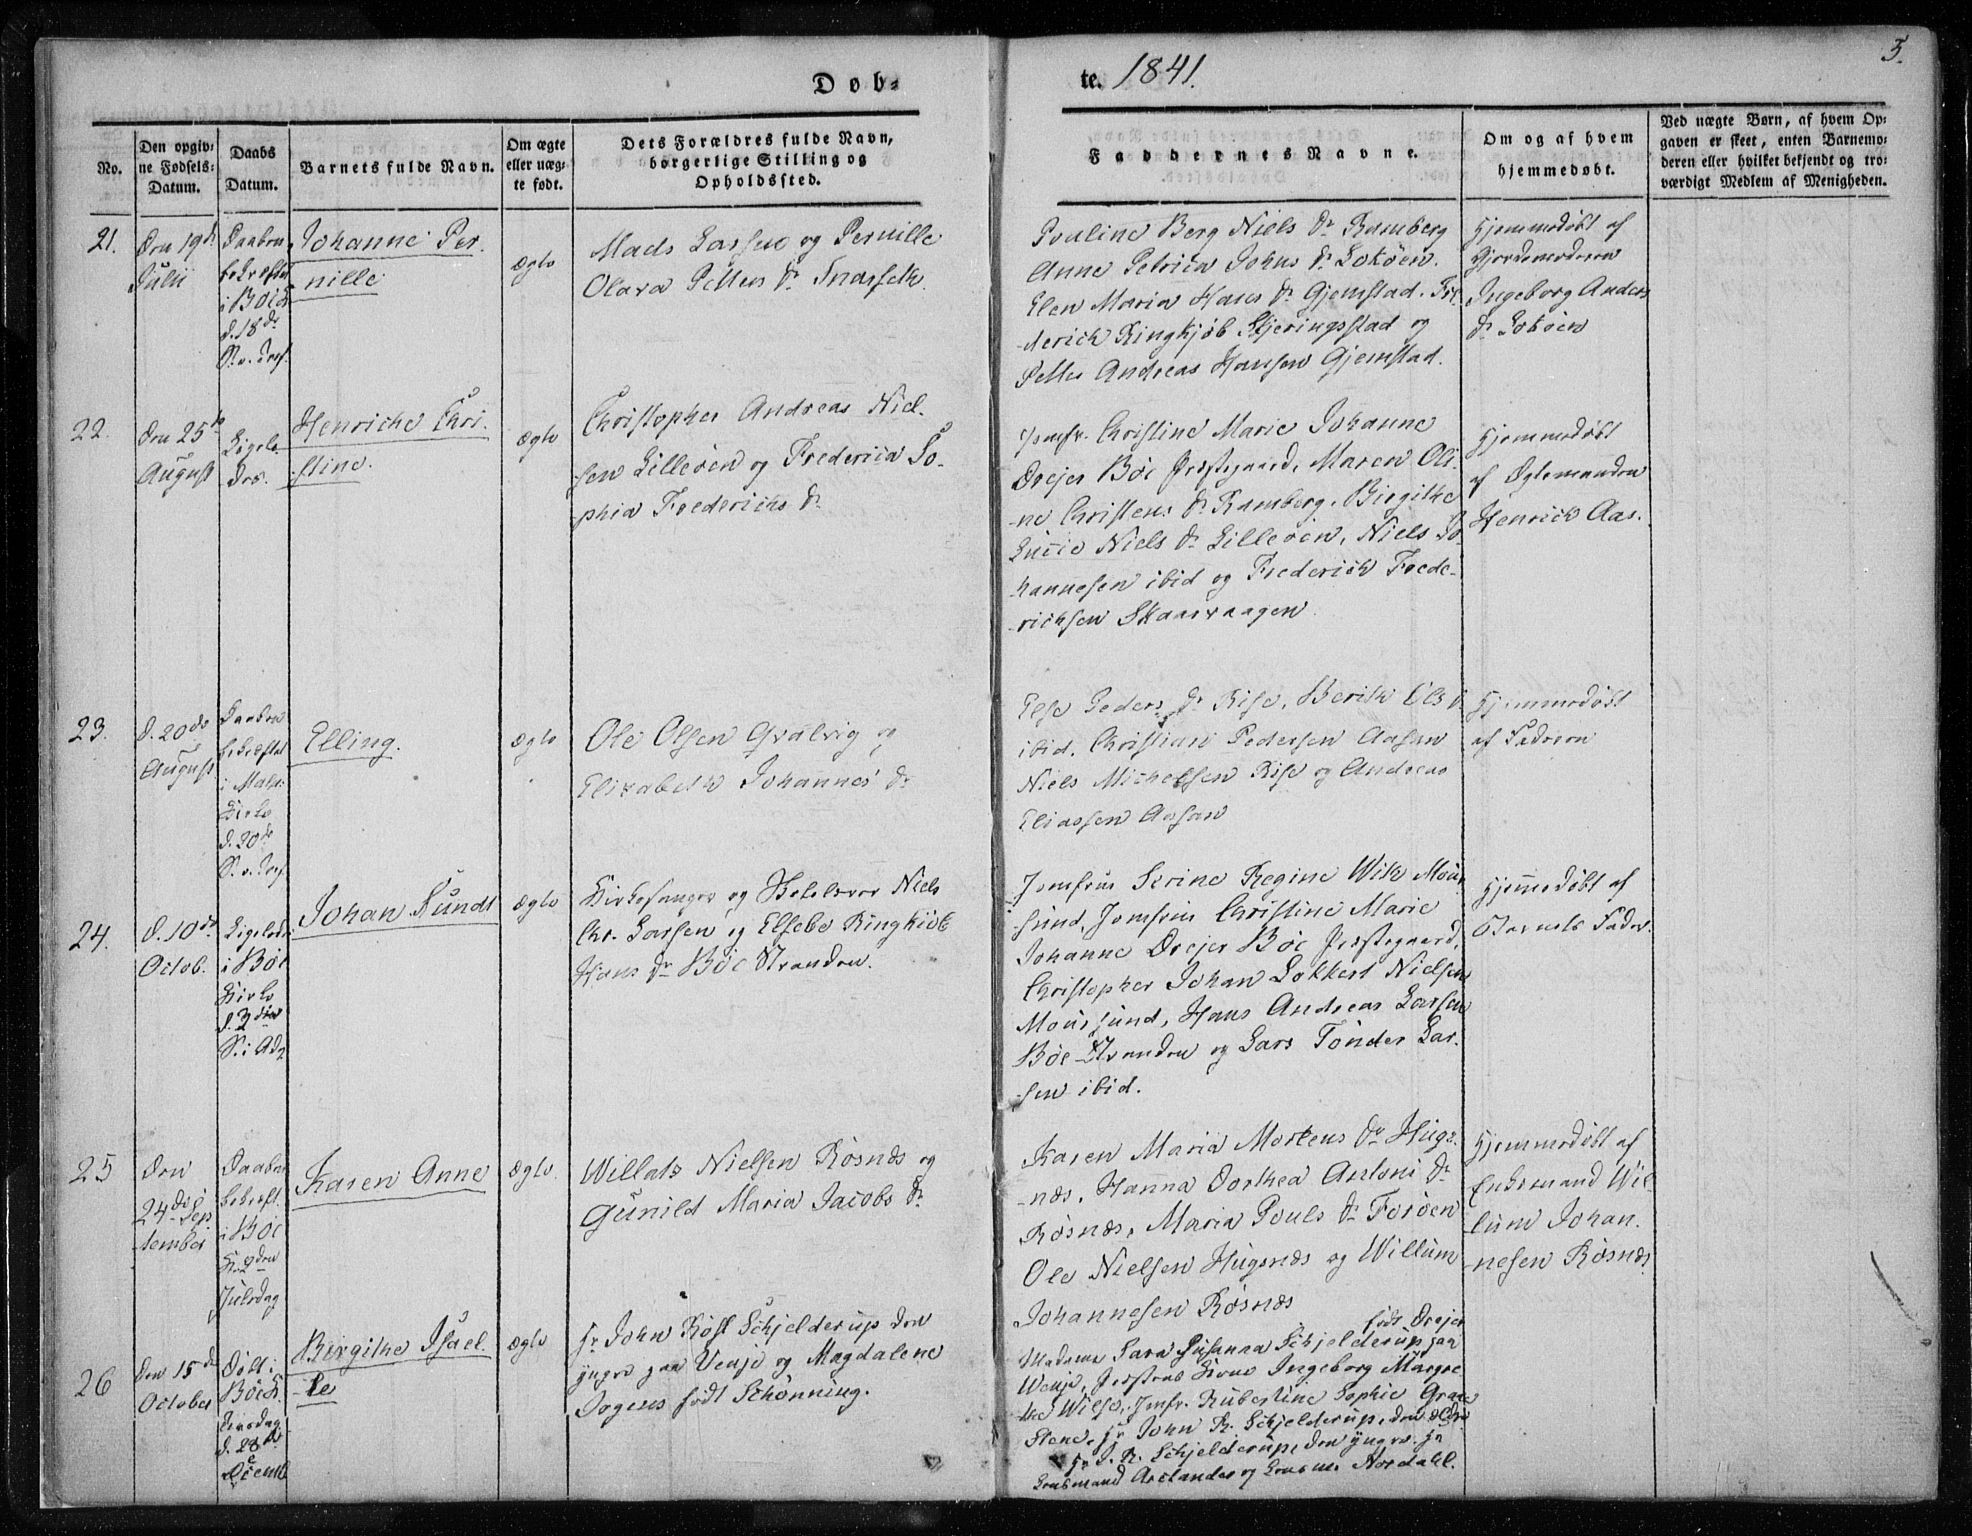 Døb-
te. 1841.
5.
No.
Den opgiv-
ne Fødsels-
Datum.
Daabs
Datum.
Barnets fulde Navn.
Om ægte
eller uæg-
te født.
Dets Forældres fulde Navn,
borgerlige Stilling og
Opholdssted.
Faddernes Navne.
Om og af hvem
hjemmedøbt.
Ved uægte Børn, af hvem Op-
gaven er skeet, enten Barnemo-
deren eller hvilket bekjendt og tro-
værdigt Medlem af Menigheden.
21.
Den 19de
Julii
Daaben
bekræftet
i Böe K.
d. 18de
S. e. Tref.
Johanne Per-
nille
ægte
Mads Larsen og Pernille
Olava Petters Dr.
Pouline Berg Niels Dr Ramberg
Anne Petrica Johns Dr Lokøen.
Elen Maria Hans Dr Gjemstad. Fre-
derich Ringkjøb Skjeringsstad og
Petter Andreas Hansen Gjemstad.
Hjemmedøbt af
Gjordemoderen
Ingeborg Anders
Dr Lokøen
22.
Den 25de
August
Ligele-
des.
Henriche Chri-
stine.
ægte
Christopher Andreas Niel-
sen Lilleöen og Fredericia So-
phia Frederichs Dr
Jomfr. Christine Marie Johanne
Drejer Böe Præstegaard, Maren Oli-
ne Christens Dr Ramberg, Birgithe
Lucie Niels Dr Lilleöen, Niels Jo-
hannesen ibid og Frederich Frede-
richsen Skaarvaagen
Hjemmedøbt
af Ægtemanden
Henrich Aas.
23.
d. 20de
August
Daaben
bekræftet
i Maln.
Kirke
d. 20de
S. e. Tref.
Elling.
ægte
Ole Olsen Qvalvig og
Elizabeth Johannes Dr
Else Peders Dr Rise, Berith Ols D.
ibid. Christian Pedersen Aasan
Niels Michelsen Rise og Andreas
Eliassen Aasan
Hjemmedøbt
af Faderen
24.
d. 10de
Octob.
Ligeledes
i Böe
Kirke
d. 3die
S. i Adv.
Johan Kundt
ægte
Kirkesanger og Skolelærer Niels
Chr. Larsen og Elsebe Ringkiöb
Hans Dr Böe Stranden.
Jomfru Serine Regine Wiik Möür-
sünd, Jomfru Christine Marie
Johanne Drejer Böe Præstegaard,
Christopher Johan Lokkert Nielsen
Möürsund, Hans Andreas Larsen
Böe-Stranden og Lars Tönder Lar-
sen ibid.
Hjemmedøbt af
Barnets Fader.
25
Den
24de Sep-
tember
Daaben
bekræft.
i Böe
K. 2den
Juledag
Karen Anne
ægte.
Willats Nielsen Rösnæs og
Gunild Maria Jacobs Dr
Karen Maria Mortens Dr Hugs-
næs, Hanna Dorthea Antoni Dr
Rösnæs, Maria Pouls Dr Foröen
Ole Nielsen Hugsnæs og Willum
Johannesen Rösnæs
Hjemmedøbt af
Enkemand Wil-
lum Johan-
nesen Rösnæs
26
Den 15de
October
Døbt i
Böe K.
Tirsdag
d. 28de
Decemb
Birgithe Isael-
le
ægte
Hr. John Röst Schjelderup den
yngre paa Veuje og Magdalene
Jogens født Schönning.
født Drejer
Madame Sara Susanna Schjelderup paa
Weuje, Præstens Kone Ingeborg Margre-
the Wilse, Jomfr. Rubertine Sophie Grau
Stene, Hr John R. Schjelderup, den ældre
Hr J. R. Schjelderup, den yngre. Hr
Lensmand Arctander og Lensm. Nordahl.